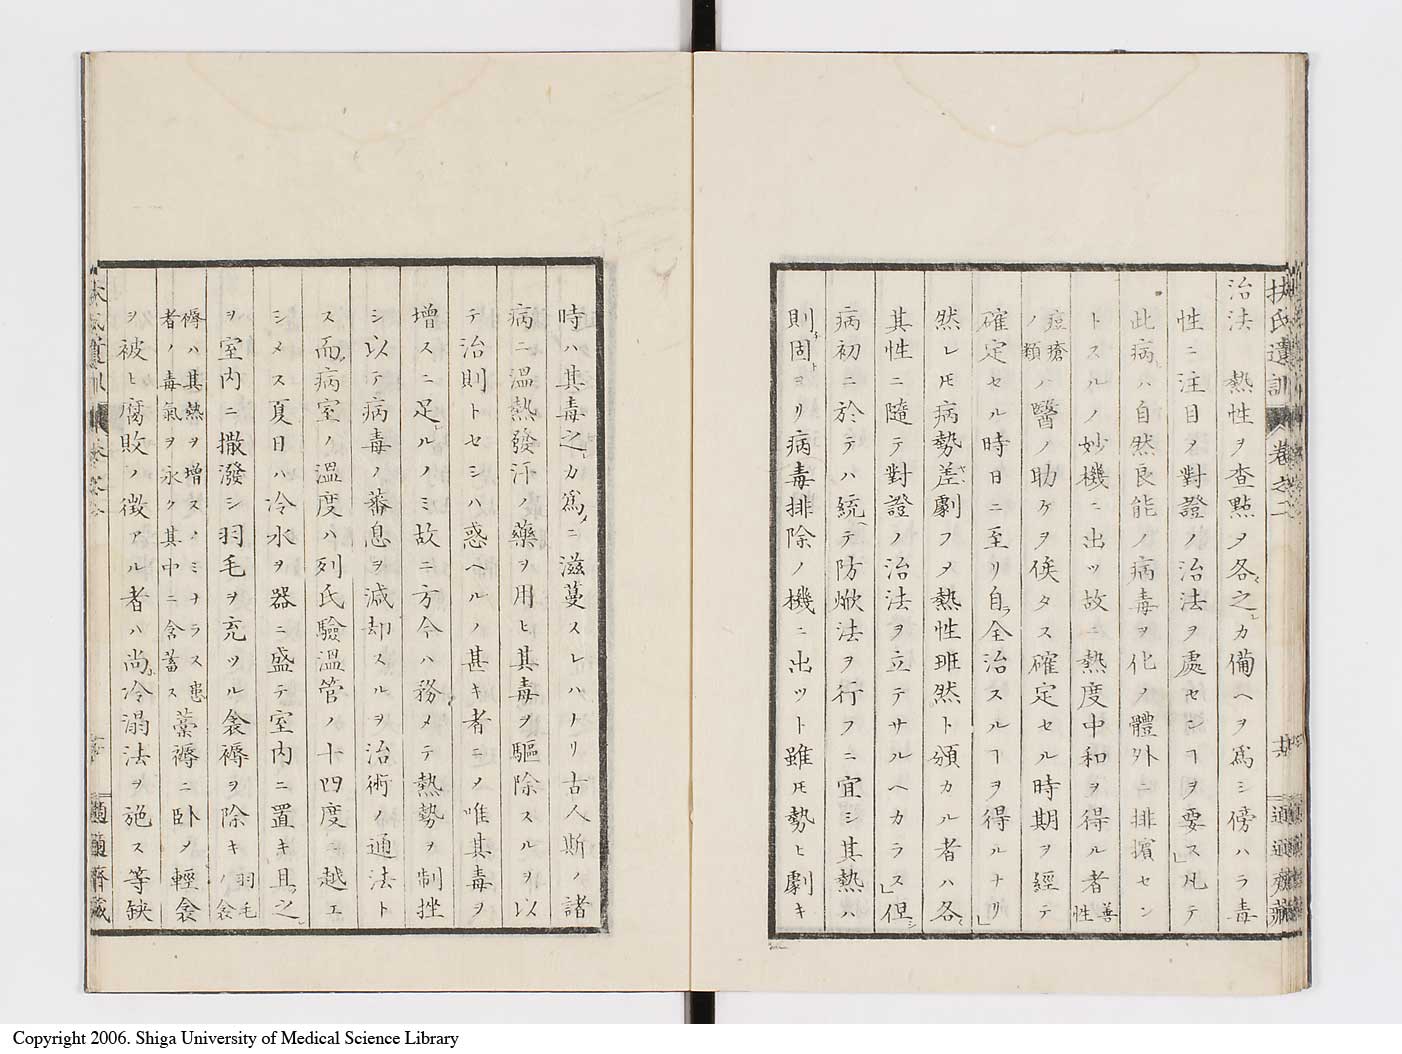 扶氏遺訓 卷之二 共 適適齋藏
治法 熱性ヲ査點〆各之カ備ヘヲ爲シ傍ハラ毒
性ニ注目〆對證ノ治法ヲ處センヿヲ要ス」凡テ
此病ハ自然良能ノ病毒ヲ化〆體外ニ排擯セン
トスルノ妙機ニ出ツ故ニ熱度中和ヲ得ル者善性
痘瘡ノ類ノ醫ノ助ケヲ俟タス確定セル時期ヲ經テ
確定セル時日ニ至リ自ラ全治スルヿヲ得ルナリ」
然レ𪜈病勢差劇フ〆熱性班然ト頒カル者ハ各
其性ニ隨テ對證ノ治法ヲ立テサルヘカラス」但シ
病初ニ於テハ統ヘテ防焮法ヲ行フニ宜シ其熱ハ
則固ヨリ病毒排除ノ機ニ出ツト雖𪜈勢ヒ劇キ
時ハ其毒之カ爲ニ滋蔓スレハナリ古人斯ノ諸
病ニ溫熱發汗ノ藥ヲ用ヒ其毒ヲ驅除スルヲ以
テ治則トセシハ惑ヘルノ甚キ者ニ〆唯其毒ヲ
增スニ足ルノミ故ニ方今ハ務メテ熱勢ヲ制挫
シ以テ病毒ノ蕃息ヲ減却スルヲ治術ノ通法ト
ス而病室ノ溫度ハ列氏驗溫管ノ十四度ニ越エ
シメス夏日ハ冷水ヲ器ニ盛テ室内ニ置キ且之
ヲ室内ニ撒潑シ羽毛ヲ充ツル衾褥ヲ除キ羽毛ノ衾
褥ハ其熱ヲ增スノミナラス患者ノ毒氣ヲ永ク其中ニ含蓄ス藁褥ニ臥〆輕衾
ヲ被ヒ腐敗ノ徵アル者ハ尚冷溻法ヲ施ス等缺
扶氏遺訓 適適齋藏
Copyright 2006. Shiga University of Medical Science Library